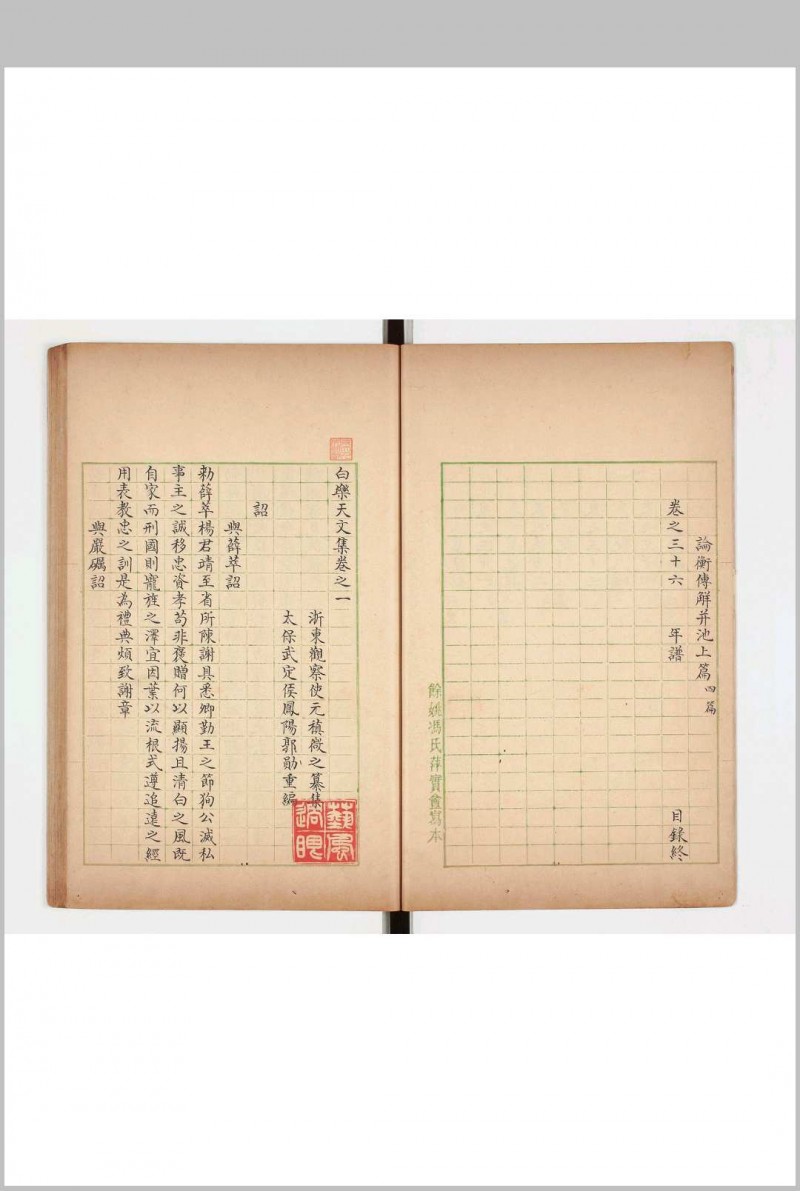 論衡傳解并池上篇四篇
卷之三十六 年譜 目錄終
餘姚馮氏萍實龕寫本
白樂天文集卷之一
浙東觀察使元稹微之纂集
太保武定侯鳳陽郭勛重編
詔
與薛苹詔
勑薛苹楊君靖至省所陳謝具悉卿勤王之節狥公滅私
事主之誠移忠資孝茍非褒贈何以顯揚且清白之風既
自家而刑國則寵旌之澤宜因葉以流根式遵追遠之經
用表教忠之訓是為禮典煩致謝章
與嚴礪詔
藝風過眼